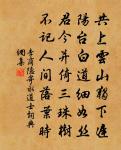 共上雲山獨下遲
陽台白道細如絲
君今并倚三珠樹
不記人間落葉時
李商隱寄永道士詞典
網集